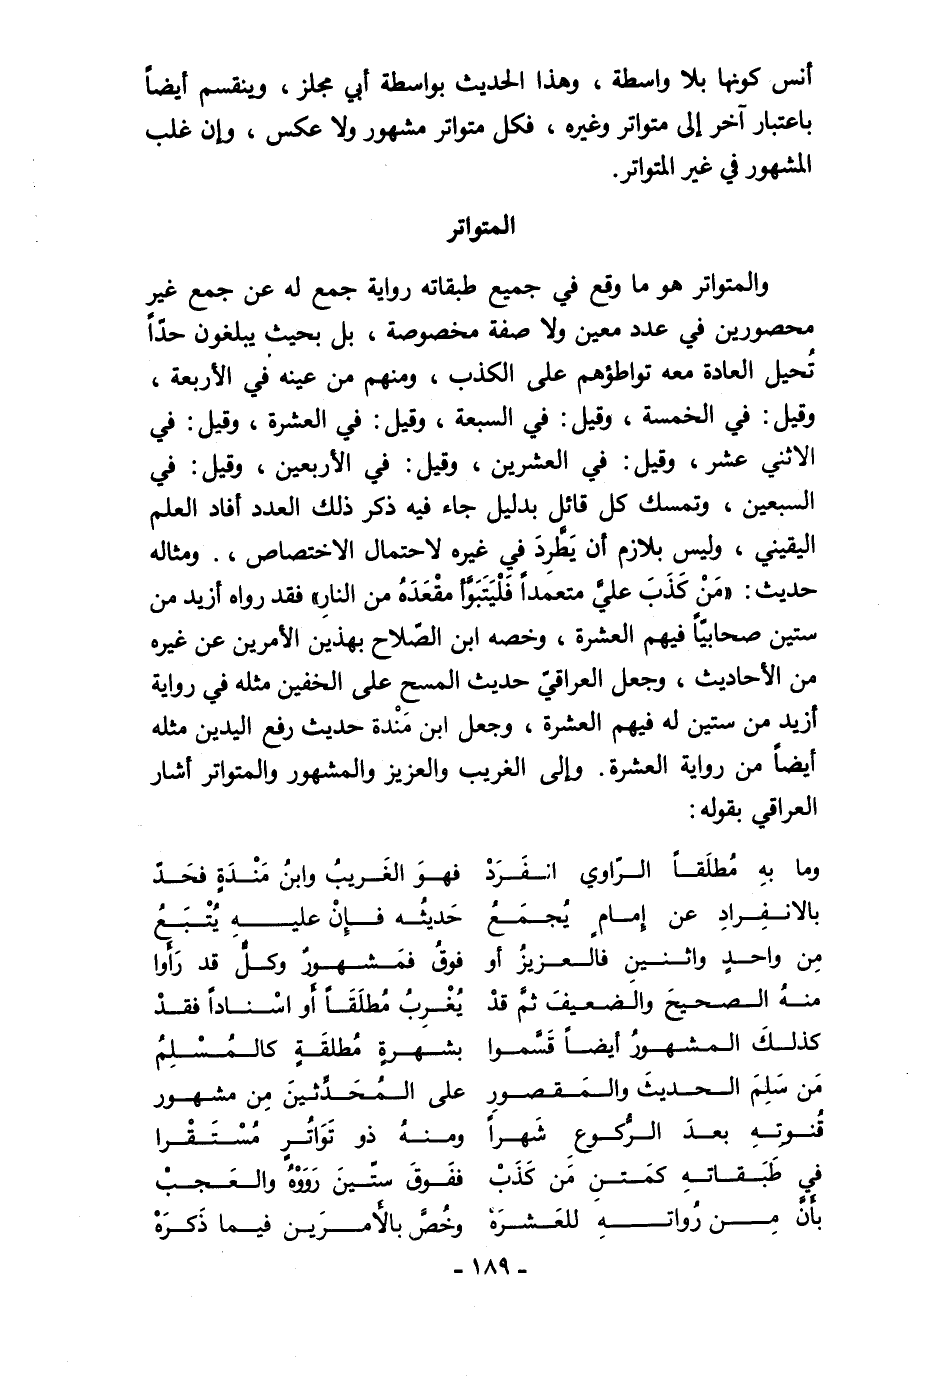 أنس كونها بلا واسطة ، وهذا الحديث بواسطة أبي مجلز ، وينقسم أيضاً
باعتبار آخر إلى متواتر وغيره ، فكل متواتر مشهور ولا عكس ، وإن غلب
المشهور في غير المتواتر.
المتواتر
والمتواتر هو ما وقع في جميع طبقاته رواية جمع له عن جمع غير
محصورين في عدد معين ولا صفة مخصوصة ، بل بحيث يبلغون حدّاً
تُحيل العادة معه تواطؤهم على الكذب ، ومنهم من عينه في الأربعة ،
وقيل: في الخمسة ، وقيل: في السبعة ، وقيل: في العشرة ، وقيل: في
الاثني عشر ، وقيل: في العشرين ، وقيل: في الأربعين ، وقيل: في
السبعين ، وتمسك كل قائل بدليل جاء فيه ذكر ذلك العدد أفاد العلم
اليقيني ، وليس بلازم أن يَطَّرِدَ في غيره لاحتمال الاختصاص ،. ومثاله
حديث: «مَنْ كَذَبَ عليَّ متعمداً فَلْيَتَبَوَّأْ مقْعَدَهُ من النارِ» فقد رواه أزيد من
ستين صحابيّاً فيهم العشرة ، وخصه ابن الصّلاح بهذين الأمرين عن غيره
من الأحاديث ، وجعل العراقيّ حديث المسح على الخفين مثله في رواية
أزيد من ستين له فيهم العشرة ، وجعل ابن مَنْدة حديث رفع اليدين مثله
أيضاً من رواية العشرة. وإلى الغريب والعزيز والمشهور والمتواتر أشار
العراقي بقوله:
وما بهِ مُطلَقاً الرّاوي انفَرَدْ فهوَ الغَريبُ وابنُ مَنْدَةٍ فحَدّ
بالانفِرادِ عن إمامٍ يُجمَعُ حَديثُه فإنْ عليهِ يُتْبَعُ
مِن واحدٍ واثنينِ فالعزيزُ أو فوقُ فمَشهورٌ وكلٌّ قد رَأَوا
منهُ الصحيحَ والضعيفَ ثمَّ قدْ يُغْرِبُ مُطلَقَاً أو اسْناداً فقدْ
كذلكَ المشهورُ أيضاً قَسَّموا بشهرةٍ مُطلقَةٍ كالمُسْلِمُ
مَن سَلِمَ الحديثَ والمَقصورِ على المُحَدِّثينَ مِن مشهورِ
قُنوتِهِ بعدَ الرُّكوعِ شَهراً ومنهُ ذو تَوَاتُرٍ مُسْتَقْرا
في طَبَقاتهِ كمَتنِ مَن كَذَبْ ففَوقَ ستّينَ رَوَوْهُ والعَجبْ
بأنَّ مِن رُواتهِ للعَشرَهْ وخُصَّ بالأمرَينِ فيما ذَكرَهْ
- ١٨٩ -